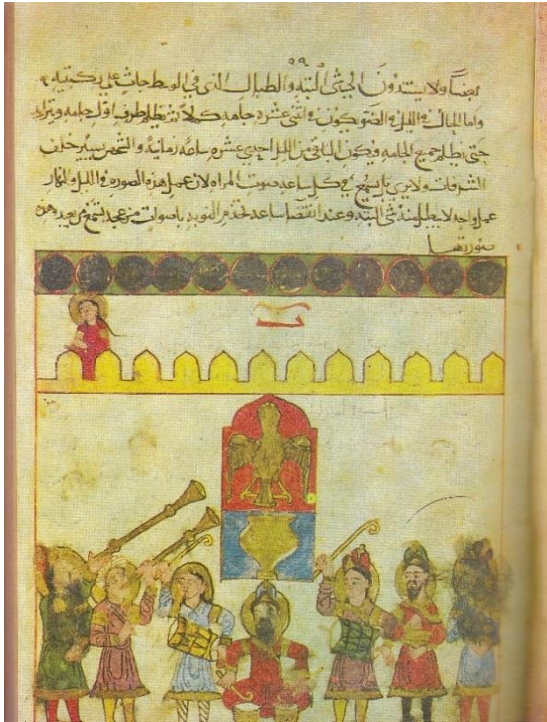 بعضاً ولا الجثى البته والطبال الذى فى الوسط جاث على ركبتيه
واما الحال فى الليل فالضو يكون فى اثنى عشره جامه كملا ثم يظلم طرف اول جامه ويتزايد
حتى اظلم جميع الجامه فيكون الباقى من الليل احدى عشره ساعة زمانية والشخص يسير خلف
الشرفات ولا يرى بل يسمع فى كل ساعه صوت المراه لان عمل هذه الصوره فى الليل والنهار
عمل واحد لا يبطل منه شى البته وعند انقضا ساعه تخدم النوبه باصوات مزعجه تسمع من بعد وهذه
صورتها